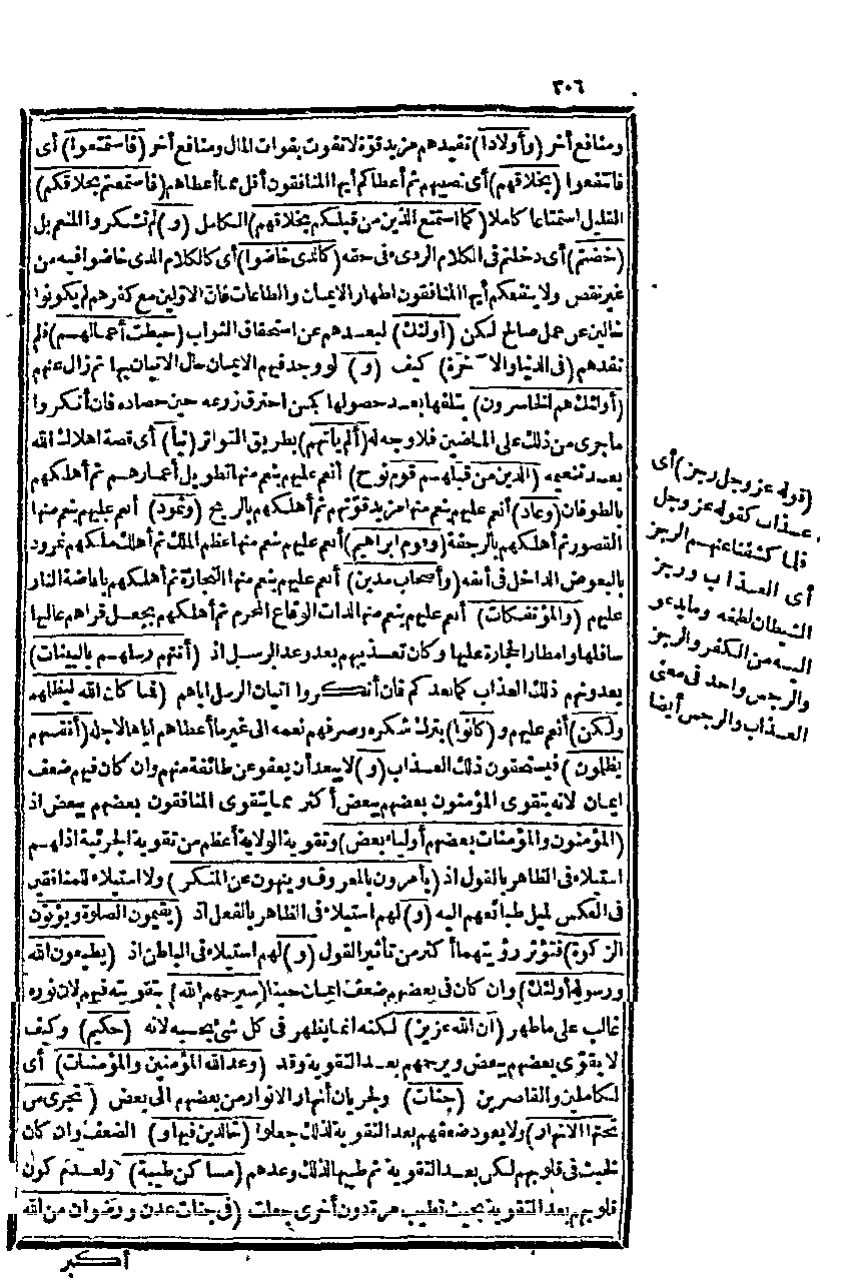 ٣٠٦
ومنافع أخر (وأولادا) تفيدهم مزيد قوّة لا تفوت بفوات المال ومنافع أخر (فاستمتعوا) أى
فانتفعوا (بخلاقهم) أى نصيبهم ثم أعطاكم أيها المنافقون أقل مما أعطاهم (فاستمتعتم بخلاقكم)
القليل استمتاعا كاملا (كما استمتع الذين من قبلكم بخلاقهم) الكامل (و) لم تشكروا المنعم بل
(خضتم) أى دخلتم فى الكلام الردىء فى حقه (كالذى خاضوا) أى كالكلام الذى خاضوا فيه من
غير نقص ولا ينفعكم أيها المنافقون اظهار الايمان والطاعات فان الاوّلين مع كفرهم لم يكونوا
خالين عن عمل صالح لكن (أولئك) لبعدهم عن استحقاق الثواب (حبطت أعمالهم) فلم
تفدهم (فى الدنيا والآخرة) كيف (و) لو وجد فيهم الايمان حال الاتيان بها ثم زال عنهم
(أولئك هم الخاسرون) بتلفها بعد حصولها كمن احترق زرعه حين حصاده فان أنكروا
ماجرى من ذلك على الماضين فلا وجه له (ألم يأتهم) بطريق التواتر (نبأ) أى قصة اهلاك الله
بعد تنعيمه (الذين من قبلهم قوم نوح) أنعم عليهم بنعم منها تطويل أعمارهم ثم أهلكهم
بالطوفان (وعاد) أنعم عليهم بنعم منها مزيد قوّتهم ثم أهلكهم بالريح (وثمود) أنعم عليهم بنعم منها
القصور ثم أهلكهم بالرجفة (وقوم ابراهيم) أنعم عليهم بنعم منها عظم الملك ثم أهلك ملكهم نمرود
بالبعوض الداخل فى أنفه (وأصحاب مدين) أنعم عليهم بنعم منها التجارة ثم أهلكهم باضافة النار
عليهم (والمؤتفكات) أنعم عليهم بنعم منها لذات الوقاع المحرم ثم أهلكهم بجعل قراهم عاليها
سافلها وامطار الحجارة عليها وكان تعذيبهم بعد وعد الرسل اذ (أتتهم رسلهم بالبينات)
يعدونهم ذلك العذاب كما بعدكم فان أنكروا اتيان الرسل اياهم (فما كان الله ليظلمهم
ولكن) أنعم عليهم و (كانوا) بترك شكره وصرفهم نعمه الى غير ما أعطاهم اياها لاجله (أنفسهم
يظلمون) فيستحقون ذلك العذاب (و) لا يبعد أن يعفو عن طائفة منهم وان كان فيهم ضعف
ايمان لانه يتقوى المؤمنون بعضهم ببعض أكثر مما يتقوى المنافقون بعضهم ببعض اذ
(المؤمنون والمؤمنات بعضهم أولياء بعض) وتقوية الولاية أعظم من تقوية الجزئية اذ لهم
استيلاء فى الظاهر بالقول اذ (يأمرون بالمعروف وينهون عن المنكر) ولا استيلاء للمنافقين
فى العكس لميل طبائعهم اليه (و) لهم استيلاء فى الظاهر بالفعل اذ (يقيمون الصلوة ويؤتون
الزكوة) فتؤثر رؤيتهما أكثر من تأثير القول (و) لهم استيلاء فى الباطن اذ (يطيعون الله
ورسوله أولئك) وان كان فى بعضهم ضعف ايمان حينا (سيرحمهم الله) بتقويته فيهم لان نوره
غالب على ماظهر (ان الله عزيز) لكنه انما يظهر فى كل شئ بحسبه لانه (حكيم) وكيف
لا يقوّى بعضهم ببعض ويرحمهم بعد التقوية وقد (وعد الله المؤمنين والمؤمنات) أى
الكاملين والقاصرين (جنات) ولجريان أنهار الانوار من بعضهم الى بعض (تجرى من
تحتها الانهار) ولا يعود ضعفهم بعد التقوية لذلك جعلوا (خالدين فيها و) الضعف وان كان
خبث فى قلوبهم لكن بعد التقوية ثم طيبها لذلك وعدهم (مساكن طيبة) ولعدم كون
قلوبهم بعد التقوية بحيث تطيب مرة دون أخرى جعلت (فى جنات عدن ورضوان من الله
أكبر
(قوله عز وجل رجز) أى
عذاب كقوله عز وجل
فلما كشفنا عنهم الرجز
أى العذاب ورجز
الشيطان لطخه وما يدعو
اليه من الكفر والرجز
والرجس واحد فى معنى
العذاب والرجس أيضا